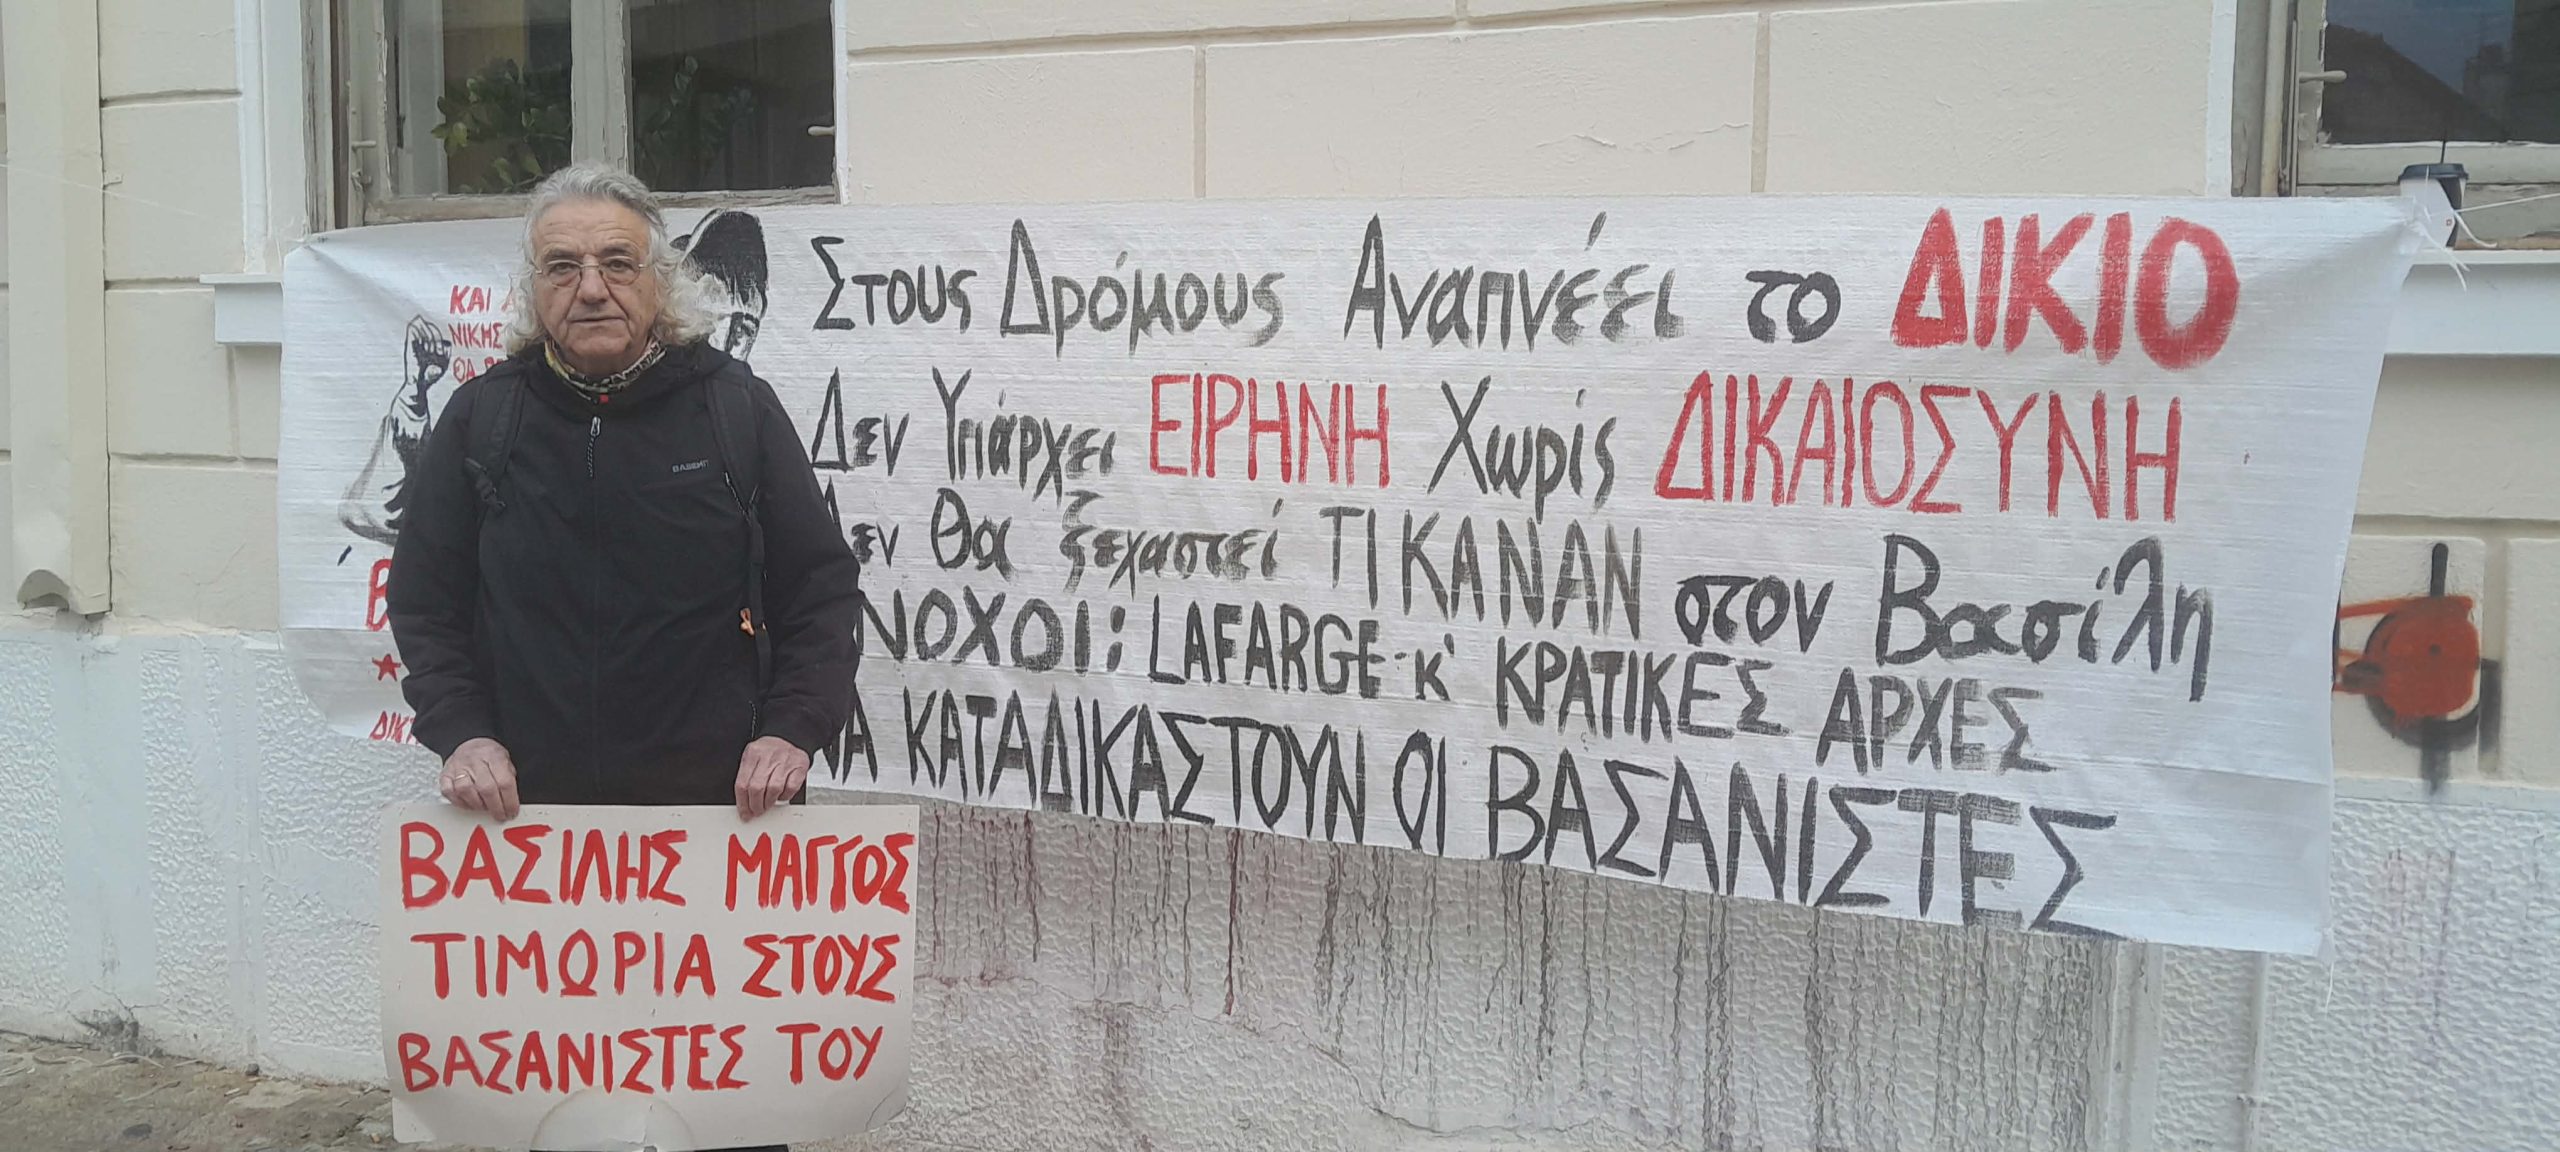 ΚΑΙ
ΝΙΚΗΣ
ΘΑ
Στους Δρόμους Αναπνέει το ΔΙΚΙΟ
Δεν Υπάρχει ΕΙΡΗΝΗ Χωρίς ΔΙΚΑΙΟΣΥΝΗ
Δεν Θα ξεχαστεί ΤΙ ΚΑΝΑΝ στον Βασίλη
ΝΟΧΟΙ: LAFARGE - κ' ΚΡΑΤΙΚΕΣ ΑΡΧΕΣ
ΝΑ ΚΑΤΑΔΙΚΑΣΤΟΥΝ ΟΙ ΒΑΣΑΝΙΣΤΕΣ
BASEHIT
ΒΑΣΙΛΗΣ ΜΑΓΓΟΣ
ΤΙΜΩΡΙΑ ΣΤΟΥΣ
ΒΑΣΑΝΙΣΤΕΣ ΤΟΥ